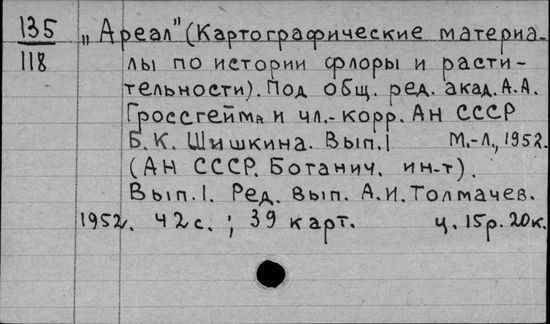 135
118
„Ареал" (Картографические материа-
лы по истории флоры и расти-
тельности). Под общ. ред. акад. А.А.
Гроссгейма и чл.-корр. АН СССР
Б.К. Шишкина. Вып.1 М.-Л., 1952.
(АН СССР. Ботанич. ин-т).
Вып.1. Ред. вып. А.И. Толмачев.
1952. 42 с. ; 39 карт. ц. 15р. 20к.